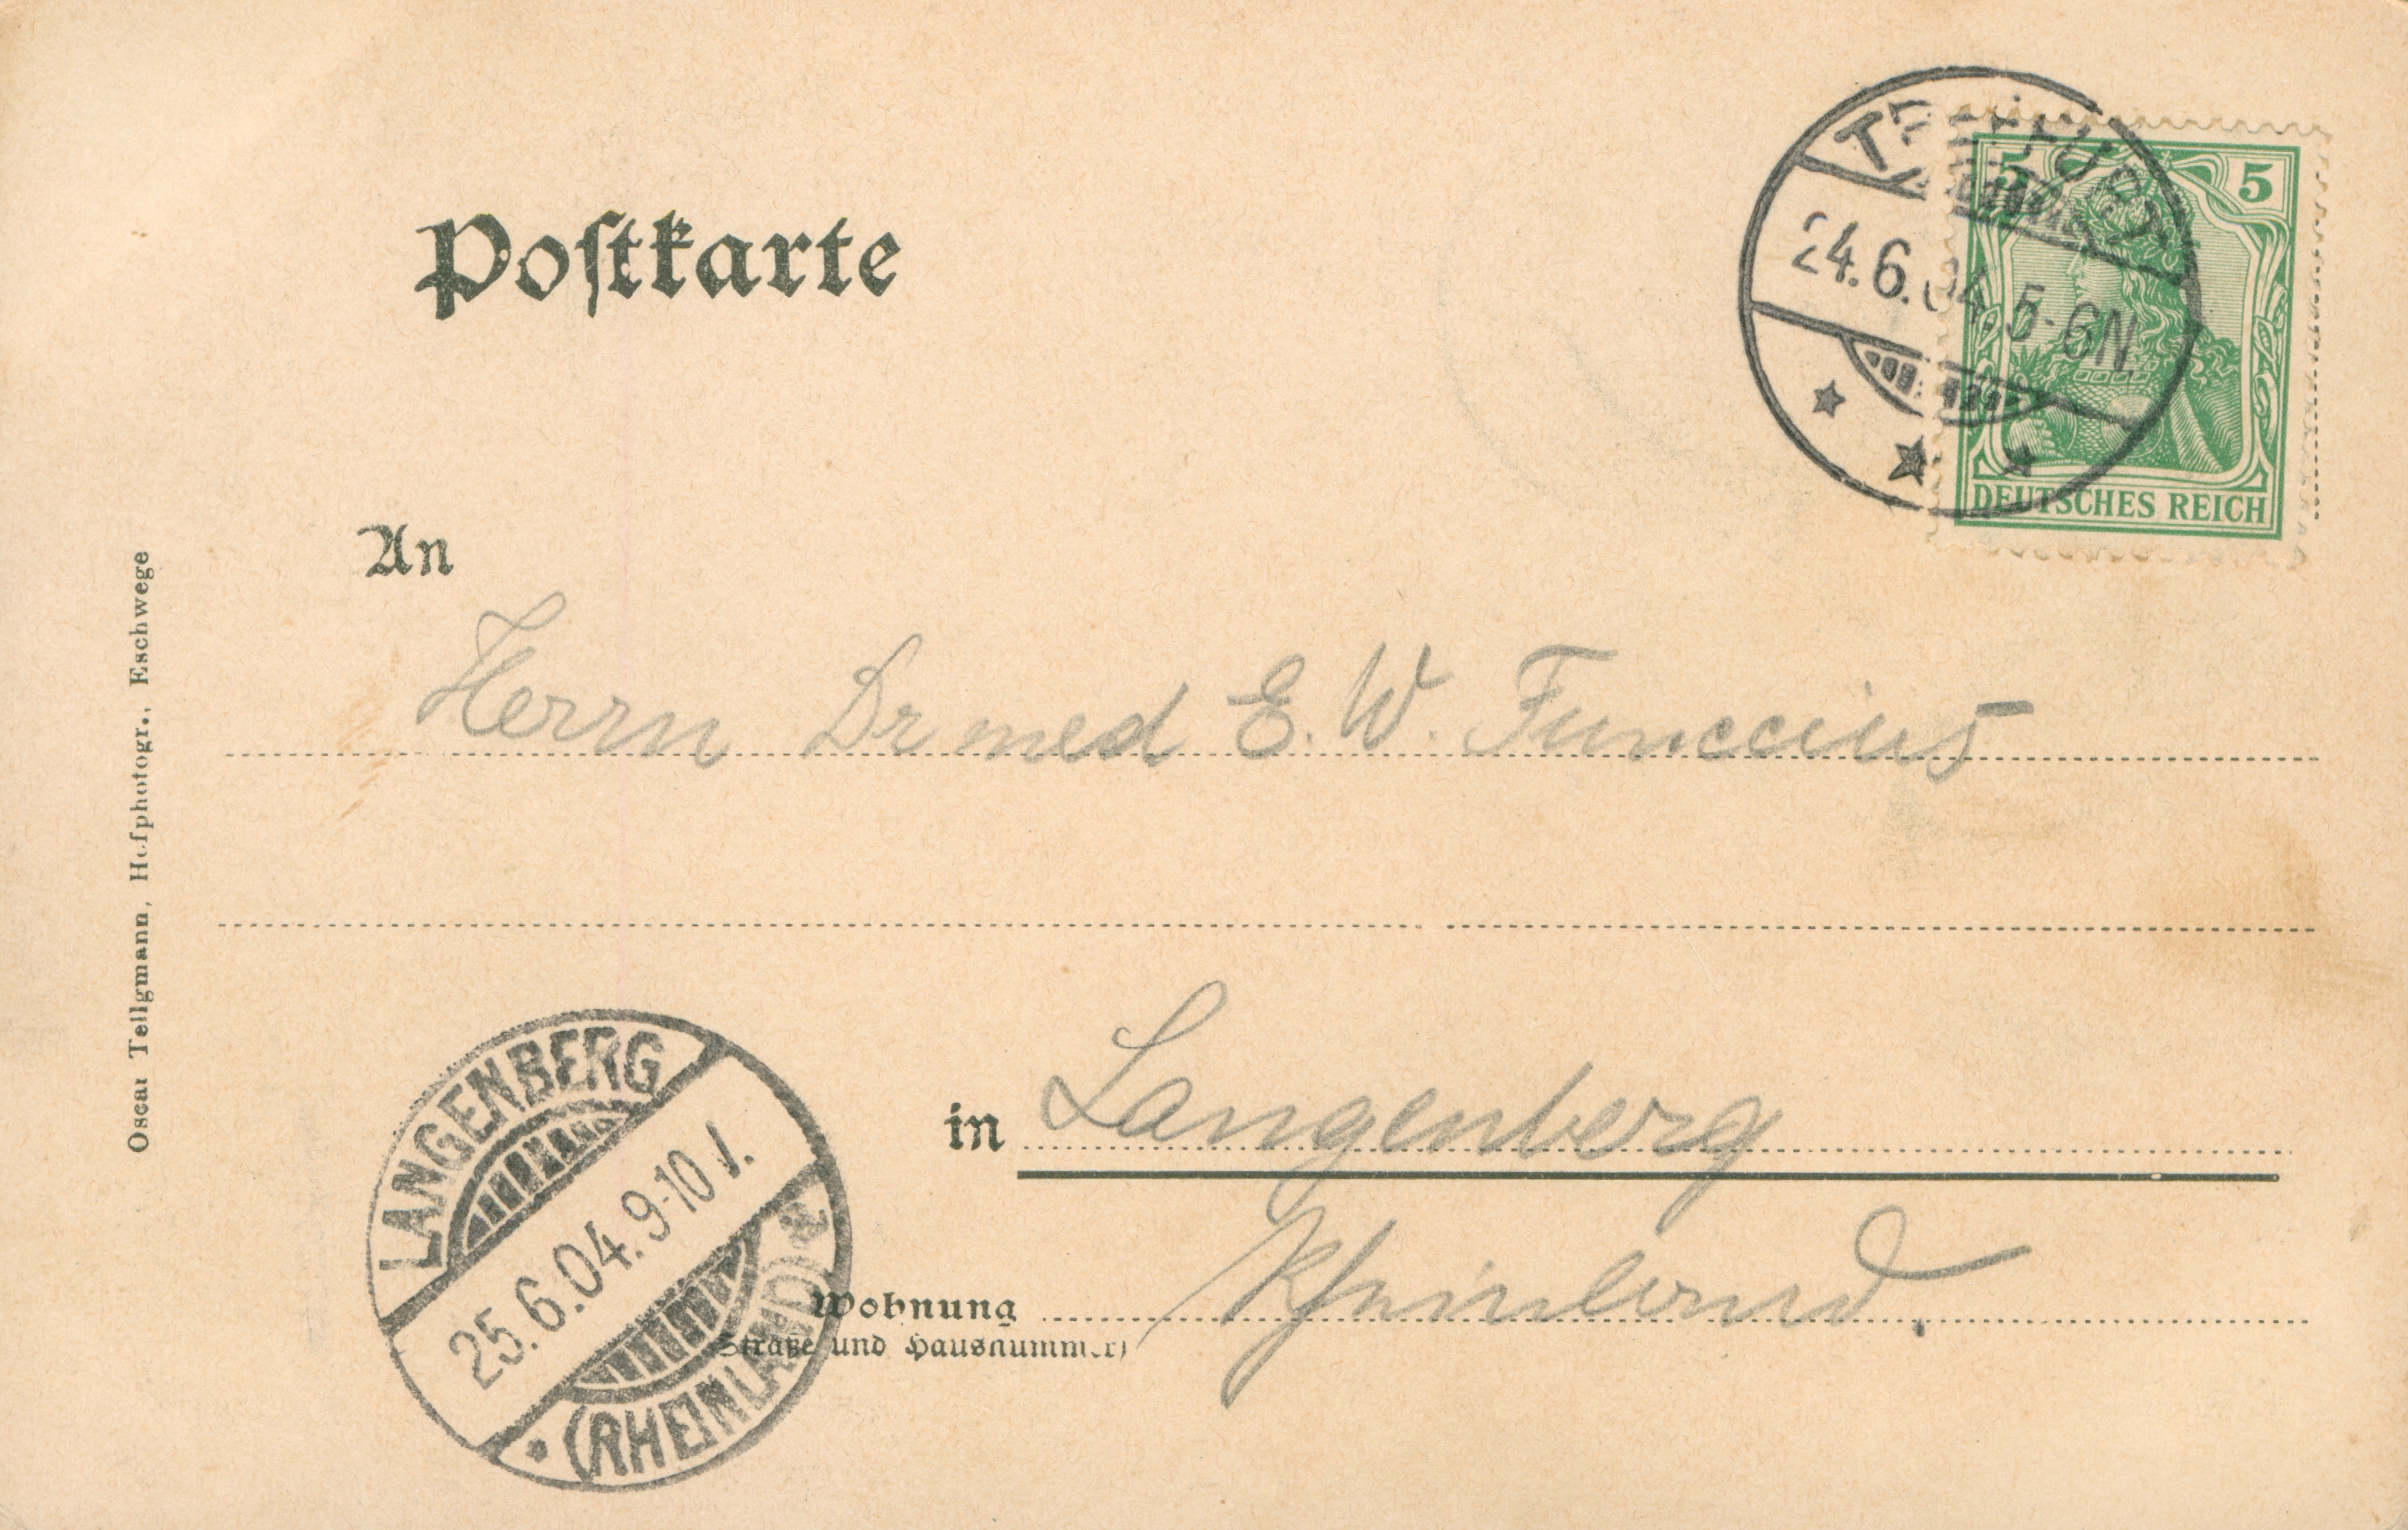 Postkarte
TREFFURT
24.6.04. 5-6N.
5 5
DEUTSCHES REICH
An
Herrn Dr med E. W. Funccius
in Langenberg
Rheinland.
Wohnung
(Straße und Hausnummer)
LANGENBERG
25.6.04. 9-10 V.
(RHEINLAND)
Oscar Tellgmann, Hofphotogr., Eschwege